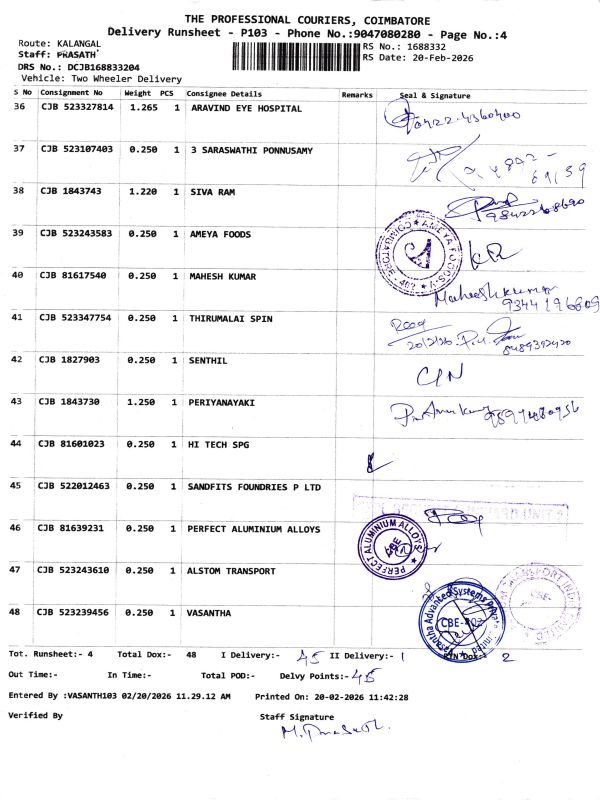 THE PROFESSIONAL COURIERS, COIMBATORE
Delivery Runsheet - P103 - Phone No.:9047080280 - Page No.:4
Route: KALANGAL
RS No.: 1688332
Staff: PRASATH
RS Date: 20-Feb-2026
DRS No.: DCJB168833204
Vehicle: Two Wheeler Delivery
S No Consignment No Weight PCS Consignee Details Remarks Seal & Signature
36 CJB 523327814 1.265 1 ARAVIND EYE HOSPITAL 0422-4360400
37 CJB 523107403 0.250 1 3 SARASWATHI PONNUSAMY
38 CJB 1843743 1.220 1 SIVA RAM
39 CJB 523243583 0.250 1 AMEYA FOODS KR
AMEYA FOODS COIMBATORE - 402
40 CJB 81617540 0.250 1 MAHESH KUMAR Maheshkumar
9344196809
41 CJB 523347754 0.250 1 THIRUMALAI SPIN
20/2/26
8489392420
42 CJB 1827903 0.250 1 SENTHIL
43 CJB 1843730 1.250 1 PERIYANAYAKI
44 CJB 81601023 0.250 1 HI TECH SPG
45 CJB 522012463 0.250 1 SANDFITS FOUNDRIES P LTD
46 CJB 81639231 0.250 1 PERFECT ALUMINIUM ALLOYS
PERFECT ALUMINIUM ALLOYS CBE
47 CJB 523243610 0.250 1 ALSTOM TRANSPORT
48 CJB 523239456 0.250 1 VASANTHA
Vasantha Advanced Systems Private Limited CBE-402
Tot. Runsheet:- 4 Total Dox:- 48 I Delivery:- 45 II Delivery:- 1 RTN Dox:- 2
Out Time:- In Time:- Total POD:- Delvy Points:- 45
Entered By :VASANTH103 02/20/2026 11.29.12 AM Printed On: 20-02-2026 11:42:28
Verified By Staff Signature